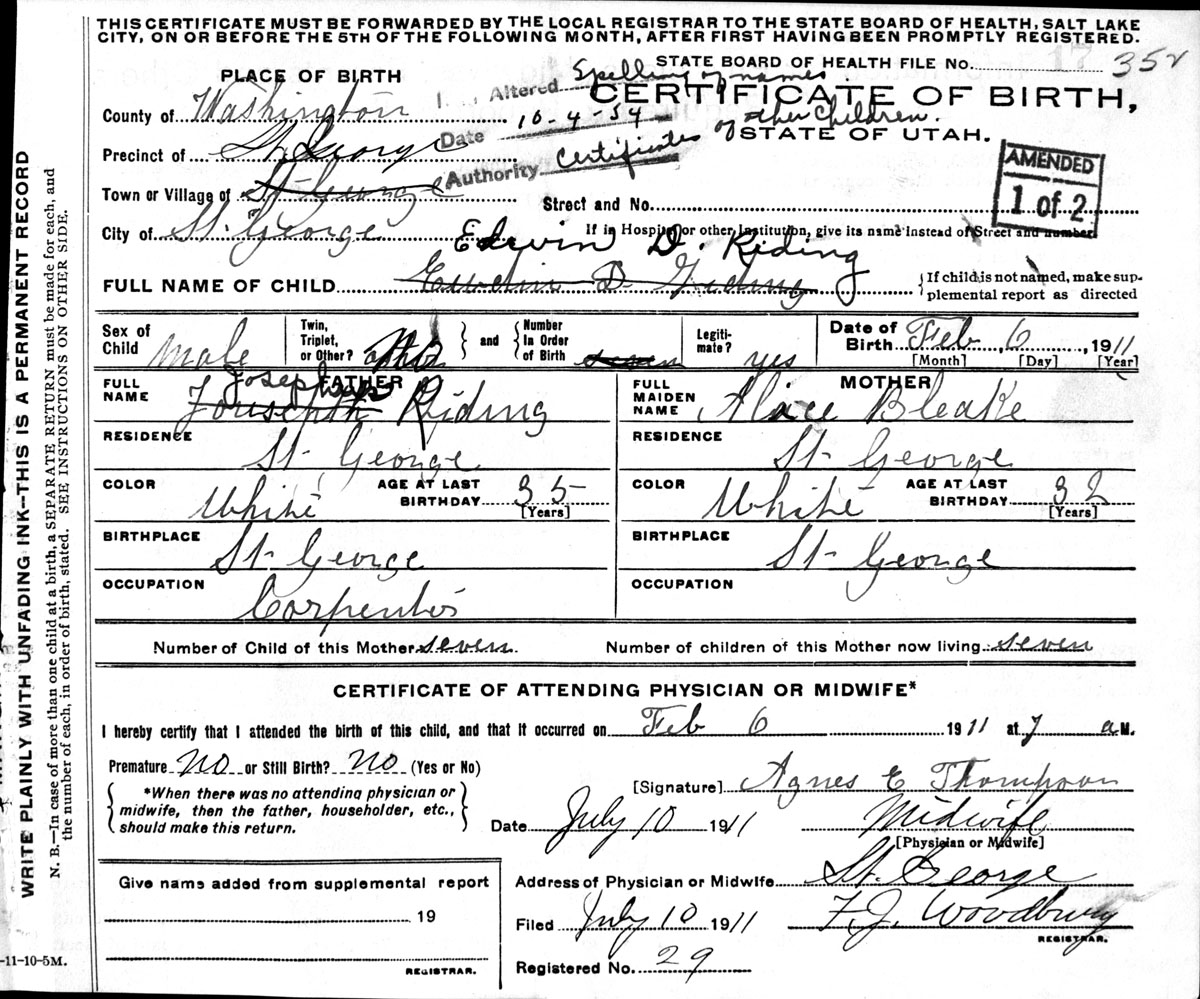 THIS CERTIFICATE MUST BE FORWARDED BY THE LOCAL REGISTRAR TO THE STATE BOARD OF HEALTH, SALT LAKE
CITY, ON OR BEFORE THE 5TH OF THE FOLLOWING MONTH, AFTER FIRST HAVING BEEN PROMPTLY REGISTERED.
STATE BOARD OF HEALTH FILE No. 17 352
PLACE OF BIRTH
Altered Spelling of names.
CERTIFICATE OF BIRTH,
County of Washington
Date 10-4-54
STATE OF UTAH.
Precinct of St. George
Authority Certificates of other Children.
AMENDED
1 of 2
Town or Village of St George
Street and No.
City of St. George
If in Hospital or other Institution, give its name instead of Street and number.
Edwin D. Riding
FULL NAME OF CHILD
{If child is not named, make sup-
plemental report as directed
Sex of Child male
Twin, Triplet, or Other?
and
Number In Order of Birth seven
Legiti-mate? yes
Date of Birth Feb 6, 1911
[Month] [Day] [Year]
FATHER
MOTHER
FULL NAME Joseph Riding
FULL MAIDEN NAME Alice Bleake
RESIDENCE St George
RESIDENCE St George
COLOR White AGE AT LAST BIRTHDAY 35 [Years]
COLOR White AGE AT LAST BIRTHDAY 32 [Years]
BIRTHPLACE St George
BIRTHPLACE St George
OCCUPATION Carpenter
OCCUPATION
Number of Child of this Mother seven
Number of children of this Mother now living seven
CERTIFICATE OF ATTENDING PHYSICIAN OR MIDWIFE*
I hereby certify that I attended the birth of this child, and that it occurred on Feb 6 1911 at 7 a M.
Premature No or Still Birth? No (Yes or No)
[Signature] Agnes E Thompson
*When there was no attending physician or
midwife, then the father, householder, etc.,
should make this return.
Date July 10 1911
Midwife
[Physician or Midwife]
Give name added from supplemental report
19
REGISTRAR.
Address of Physician or Midwife St. George
Filed July 10 1911
F. J. Woodbury
REGISTRAR.
Registered No. 29
WRITE PLAINLY WITH UNFADING INK—THIS IS A PERMANENT RECORD
N. B.—In case of more than one child at a birth, a SEPARATE RETURN must be made for each, and
the number of each, in order of birth, stated. SEE INSTRUCTIONS ON OTHER SIDE.
-11-10-5M.